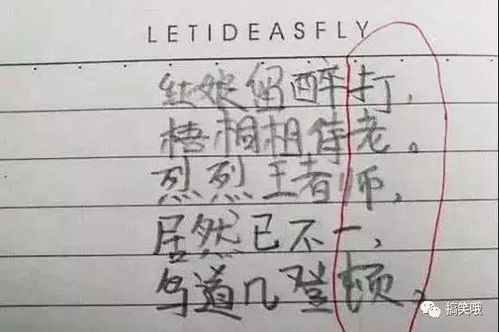 LETIDEASFLY
红娘留醉打，
梧相相待老。
烈烈王者师，
居然已不一，
鸟道几登顿。
搞笑哦